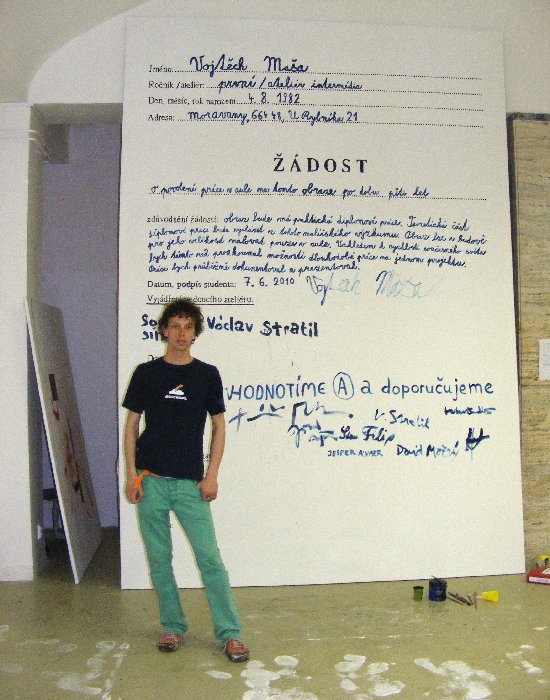 Jméno: Vojtěch Maša
Ročník/atelier: první/atelier intermédia
Den, měsíc, rok narození: 4. 8. 1982
Adresa: Moravany, 664 48, U Rybníka 21
ŽÁDOST
o povolení práce v aule na tomto obraze po dobu pěti let
zdůvodnění žádosti: obraz bude má praktická diplomová práce. Teoretická část
diplomové práce bude vycházet z tohoto malířského výzkumu. Obraz lze z důvodů
pro jeho velikost malovat pouze v aule. Vzhledem k rychlosti současného světa
bych tímto rád prozkoumal možnosti dlouhodobé práce na jednom projektu.
Práci bych průběžně dokumentoval a prezentoval.
Datum, podpis studenta: 7. 6. 2010 Vojtěch Maša
Vyjádření vedoucího ateliéru:
Václav Stratil
HODNOTÍME A a doporučujeme
V. Stratil
Filip
JESPER ALVAER David